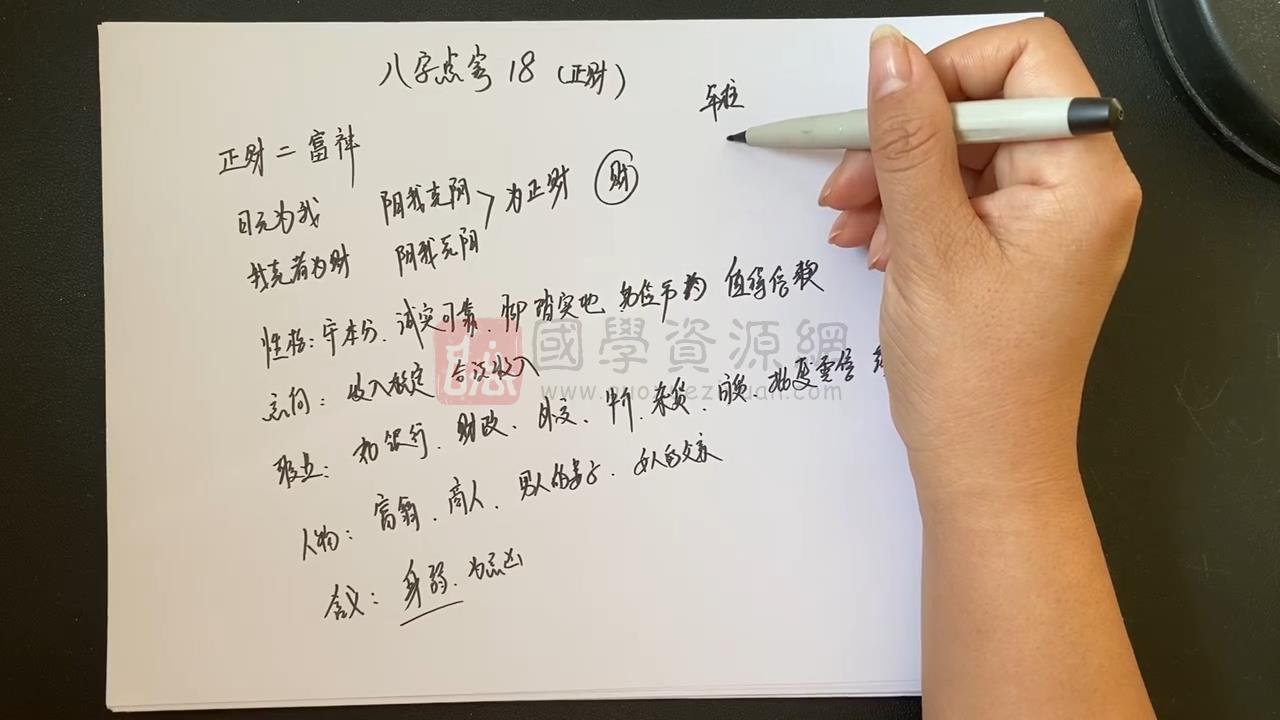 八字点窍 18 (正财)
年柱
正财 = 富神
日元为我 阴我克阳 > 为正财 财
我克者为财 阳我克阴
性格：守本分、诚实可靠、脚踏实地 值得信赖
志向：收入稳定 合法收入
职业：如银行、财政、外交、中介、杂货、百货、
人物：富翁、商人、男人的妻子、女人的父亲
含义：身弱、为忌凶
國學資源網